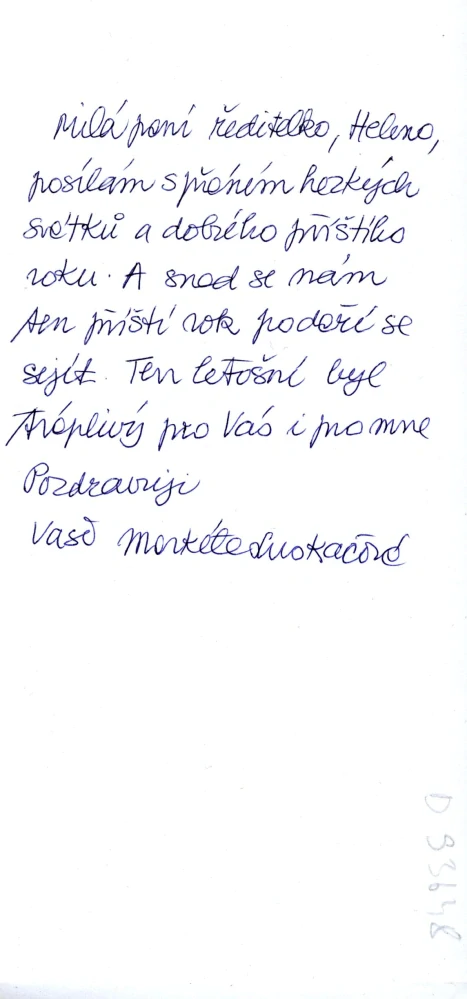 Milá paní ředitelko, Heleno,
posílám s přáním hezkých
svátků a dobrého příštího
roku. A snad se nám
ten příští rok podaří se
sejít. Ten letošní byl
trápivý pro Vás i pro mne
Pozdravuji
Vaše Markéta Luskačová
D 93648